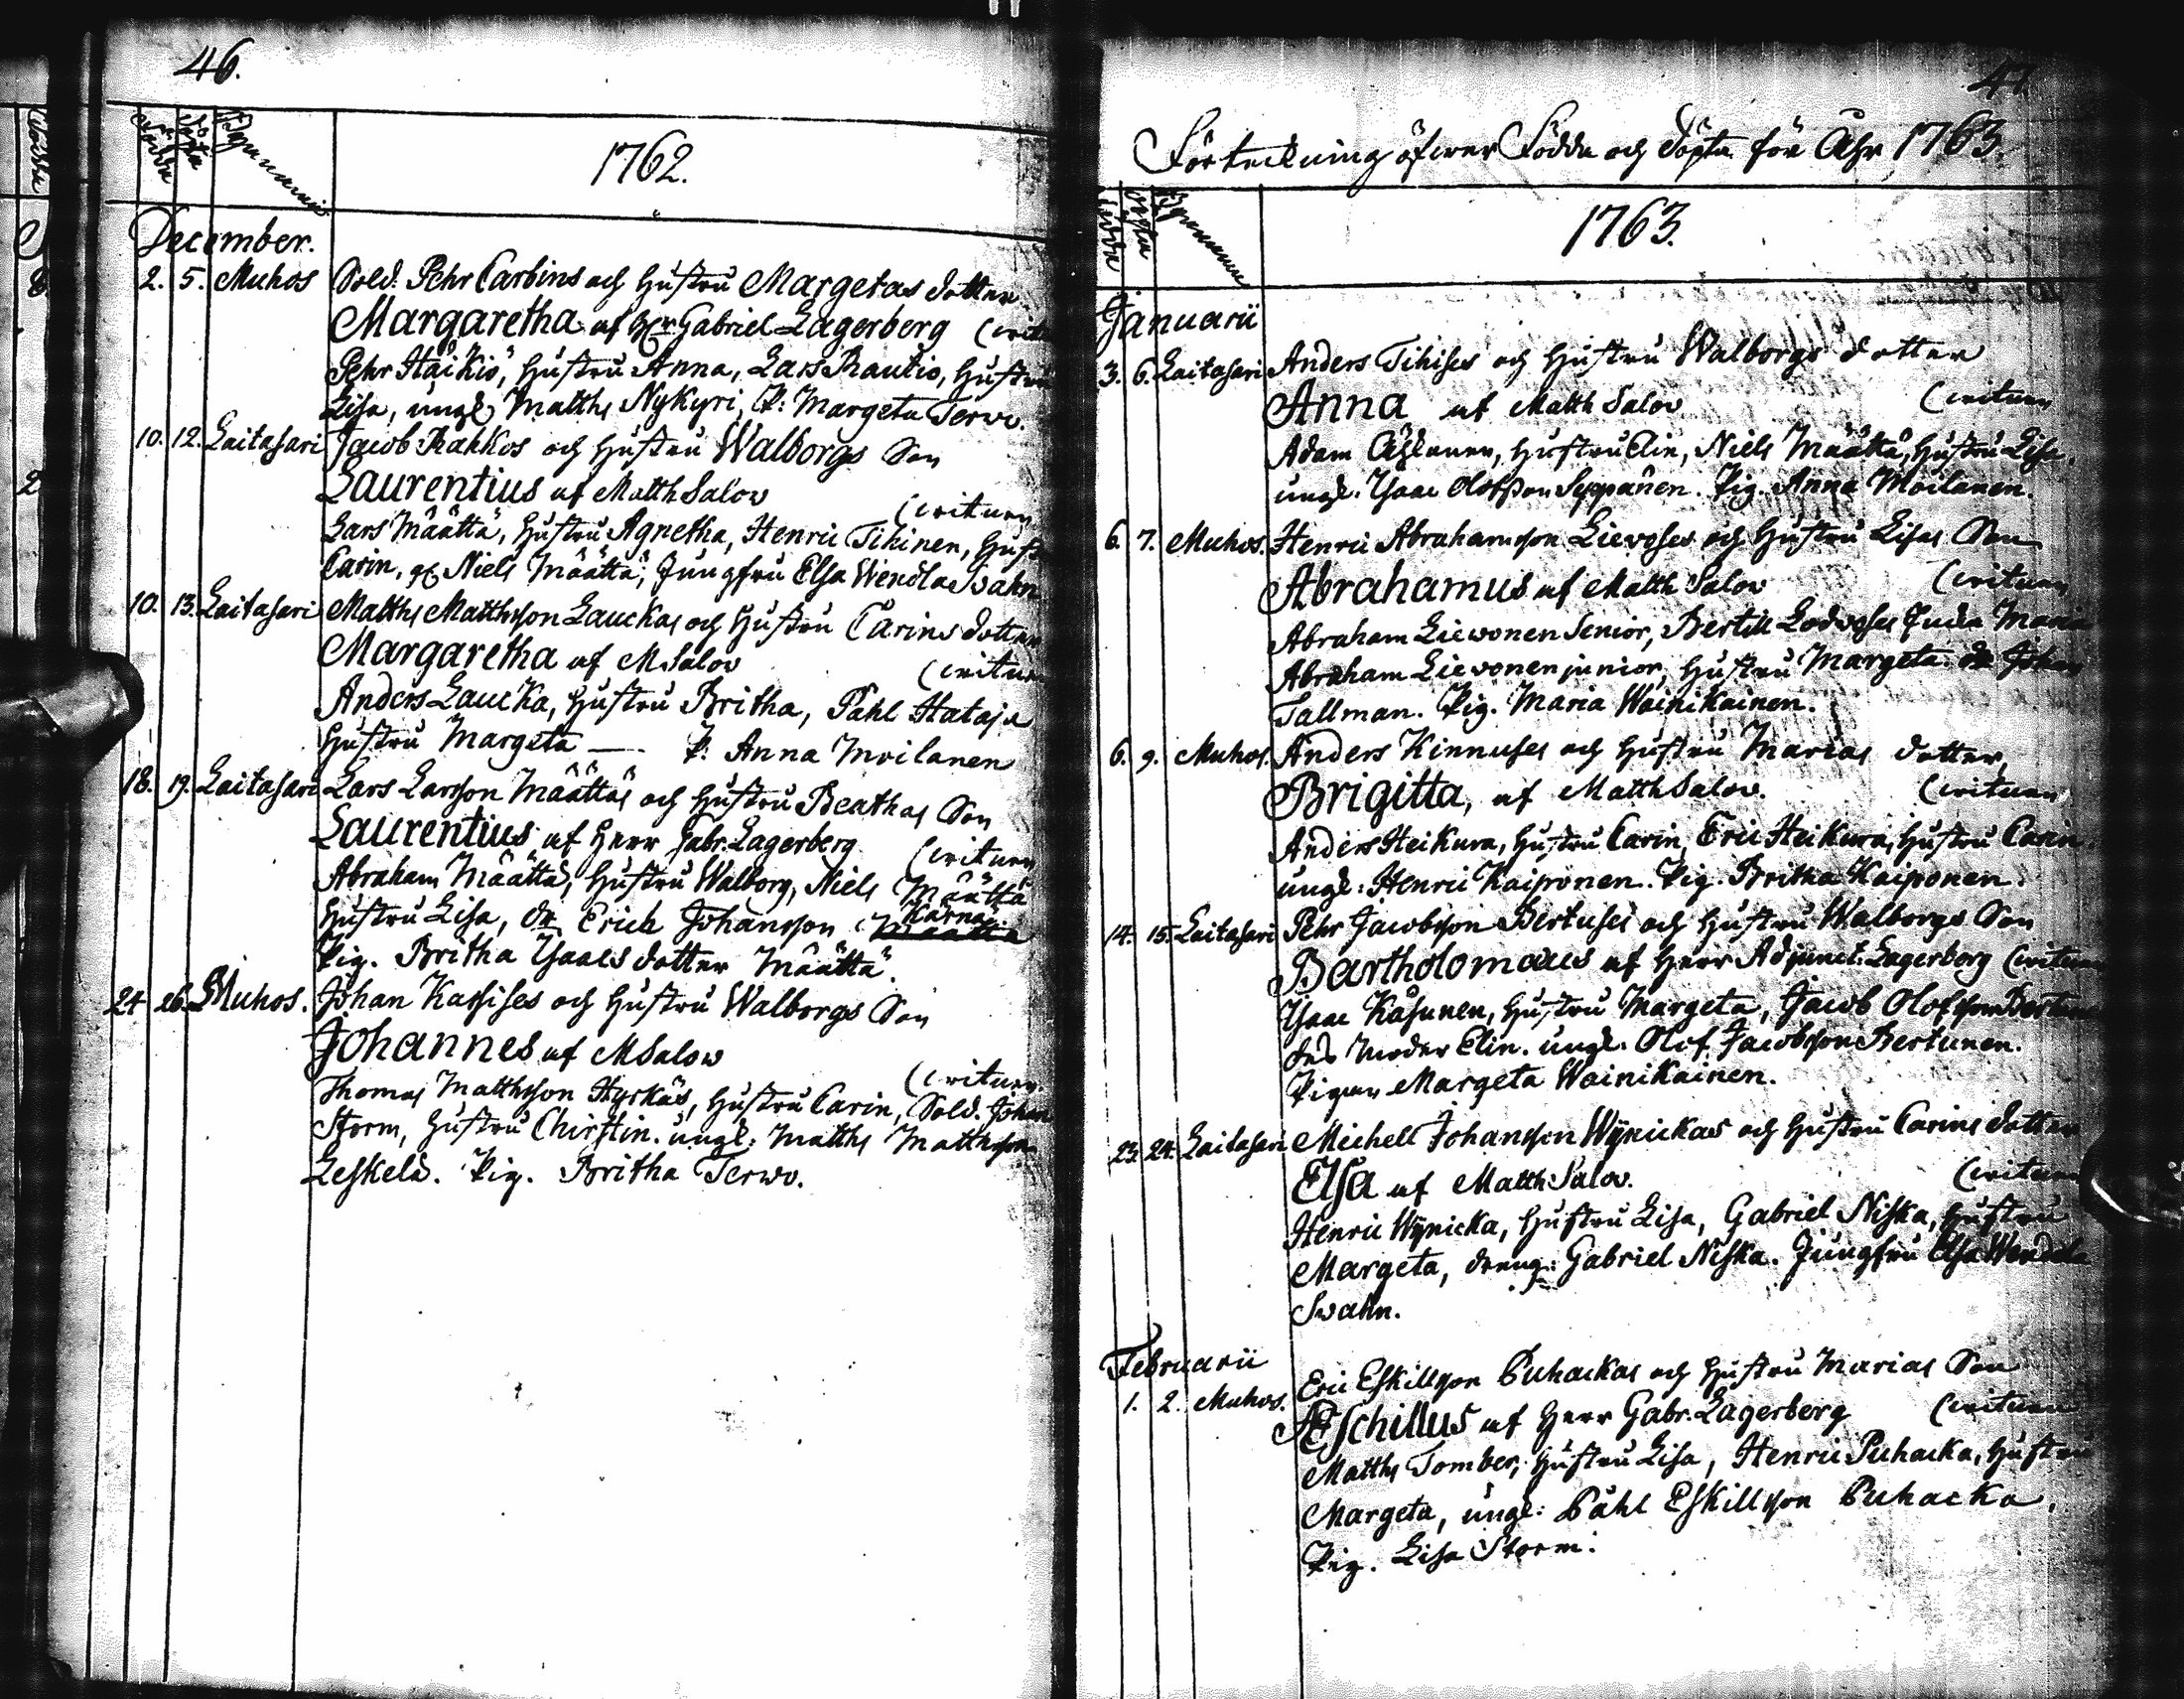 46.
Födda
Döpta
Bynamnen
1762.
December.
2. 5. Muhos Sold: Pehr Carbins och hustru Margetas dotter
Margaretha af Hr Gabriel Lagerberg (vitn
Pehr Häikiö, hustru Anna, Lars Rautio, hustru
Lisa, ungl. Matths Nykyri, P: Margeta Terwo.
10. 12. Laitasari Jacob Rahkos och hustru Walborgs Son
Laurentius af Matth Salov (vitnen
Lars Määttä, hustru Agnetha, Henric Tihinen, hust
Carin, Niels Määttä, Jungfru Elsa Wendla Svahn
10. 13. Laitasari Matths Matthsson Lauckas och hustru Carins dotter
Margaretha af M. Salov (vitn
Anders Laucka, hustru Britha, Påhl Hataja
hustru Margeta — P: Anna Moilanen
18. 19. Laitasari Lars Larsson Määttäs och hustru Beathas Son
Laurentius af Herr Gabr. Lagerberg (vitnen
Abraham Määttä, hustru Walborg, Niels Määttä
hustru Lisa, dr. Erich Johansson Kärnä
Pig. Britha Isaacsdotter Määttä.
24 26. Muhos. Johan Kassises och hustru Walborgs Son
Johannes af M Salow (vitnen
Thomas Matthsson Hyrkäs, hustru Carin, Sold. Johan
Storm, hustru Chirstin. ungl: Matths Matthsson
Leskelä. Pig. Britha Terwo.
47.
Förteckning öfwer Födda och Döpta för Åhr 1763.
Födda
Döpta
Bynamnen
1763.
Januarii
3. 6. Laitasari Anders Tihises och hustru Walborgs dotter
Anna af Matth Salov (vitnen
Adam hustru Elin, Niels Määttä, hustru Lisa,
ungl. Isaac Olofsson Seppänen. Pig. Anna Moilanen.
6. 7. Muhos. Henric Abrahamsson Lievoses och hustru Lisas Son
Abrahamus af Matth Salov (vitnen
Abraham Liewonen Senior, Bertill Maria
Abraham Lievonen junior, hustru Margeta. dr. Johan
Tallman. Pig. Maria Wäinikainen.
6. 9. Muhos. Anders Kinnuses och hustru Marias dotter
Brigitta, af Matth Salov. (vitnen
Anders Heikura, hustru Carin, Eric Heikura, hustru Carin.
ungl: Henric Kaiponen. Pig. Britha Kaiponen.
14. 15. Laitasari Pehr Jacobsson Bertuses och hustru Walborgs Son
Bartholomaeus af Herr Adjunct. Lagerberg (vitnen
Isaac Käsunen, hustru Margeta, Jacob Olofsson Bertunen
des moder Elin. ungl. Olof Jacobsson Bertunen.
Pigan Margeta Wainikainen.
23. 24. Laitasari Michell Johansson Wÿrickas och hustru Carins dotter
Elsa af Matth: Salov. (vitnen
Henric Wÿricka, hustru Lisa, Gabriel Niska, hustru
Margeta, dreng: Gabriel Niska. Jungfru Elsa Wendela
Svahn.
Februarii
1. 2. Muhos. Eric Eskillsson Puhackas och hustru Marias Son
Æschillus af Herr Gabr. Lagerberg (vitnen
Matths Tomber, hustru Lisa, Henric Puhacka, hustru
Margeta, ungl: Påhl Eskillsson Puhacka.
Pig. Lisa Storm.